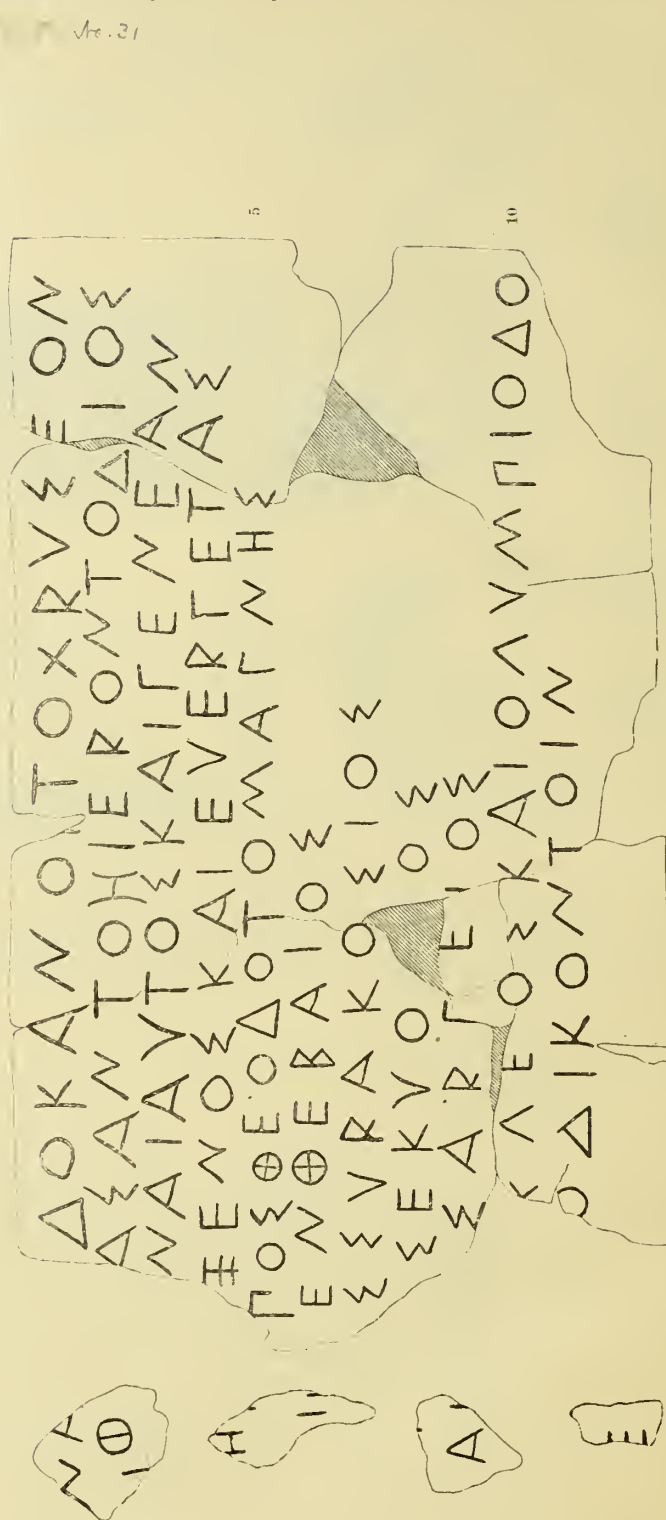 No. 21
ΔΟΚΑΝΟΙΤΟΧRVΣΕΟΝ
ΑΣΑΝΤΟΗΙΕRΟΝΤΟΔΙΟΣ
ΝΑΙΑΥΤΟΣΚΑΙΓΕΝΕΑΝ
ΞΕΝΟΣΚΑΙΕVΕRΓΕΤΑΣ
5
ΓΟΣΘΕΟΔΟΤΟΜΑΓΝΗΣ
ΕΝΘΕΒΑΙΟΣ
ΣΣVRΑΚΟΣΙΟΣ
ΣΕΚVΟ ΟΣ
ΣΑRΓΕΙΟΣ
10
ΚΛΕΟΣΚΑΙΟΛVΜΠΙΟΔΟ
ΟΔΙΚΟΝΤΟΙΝ
ΝΑ
ΙΘ
Η
Α
Ε